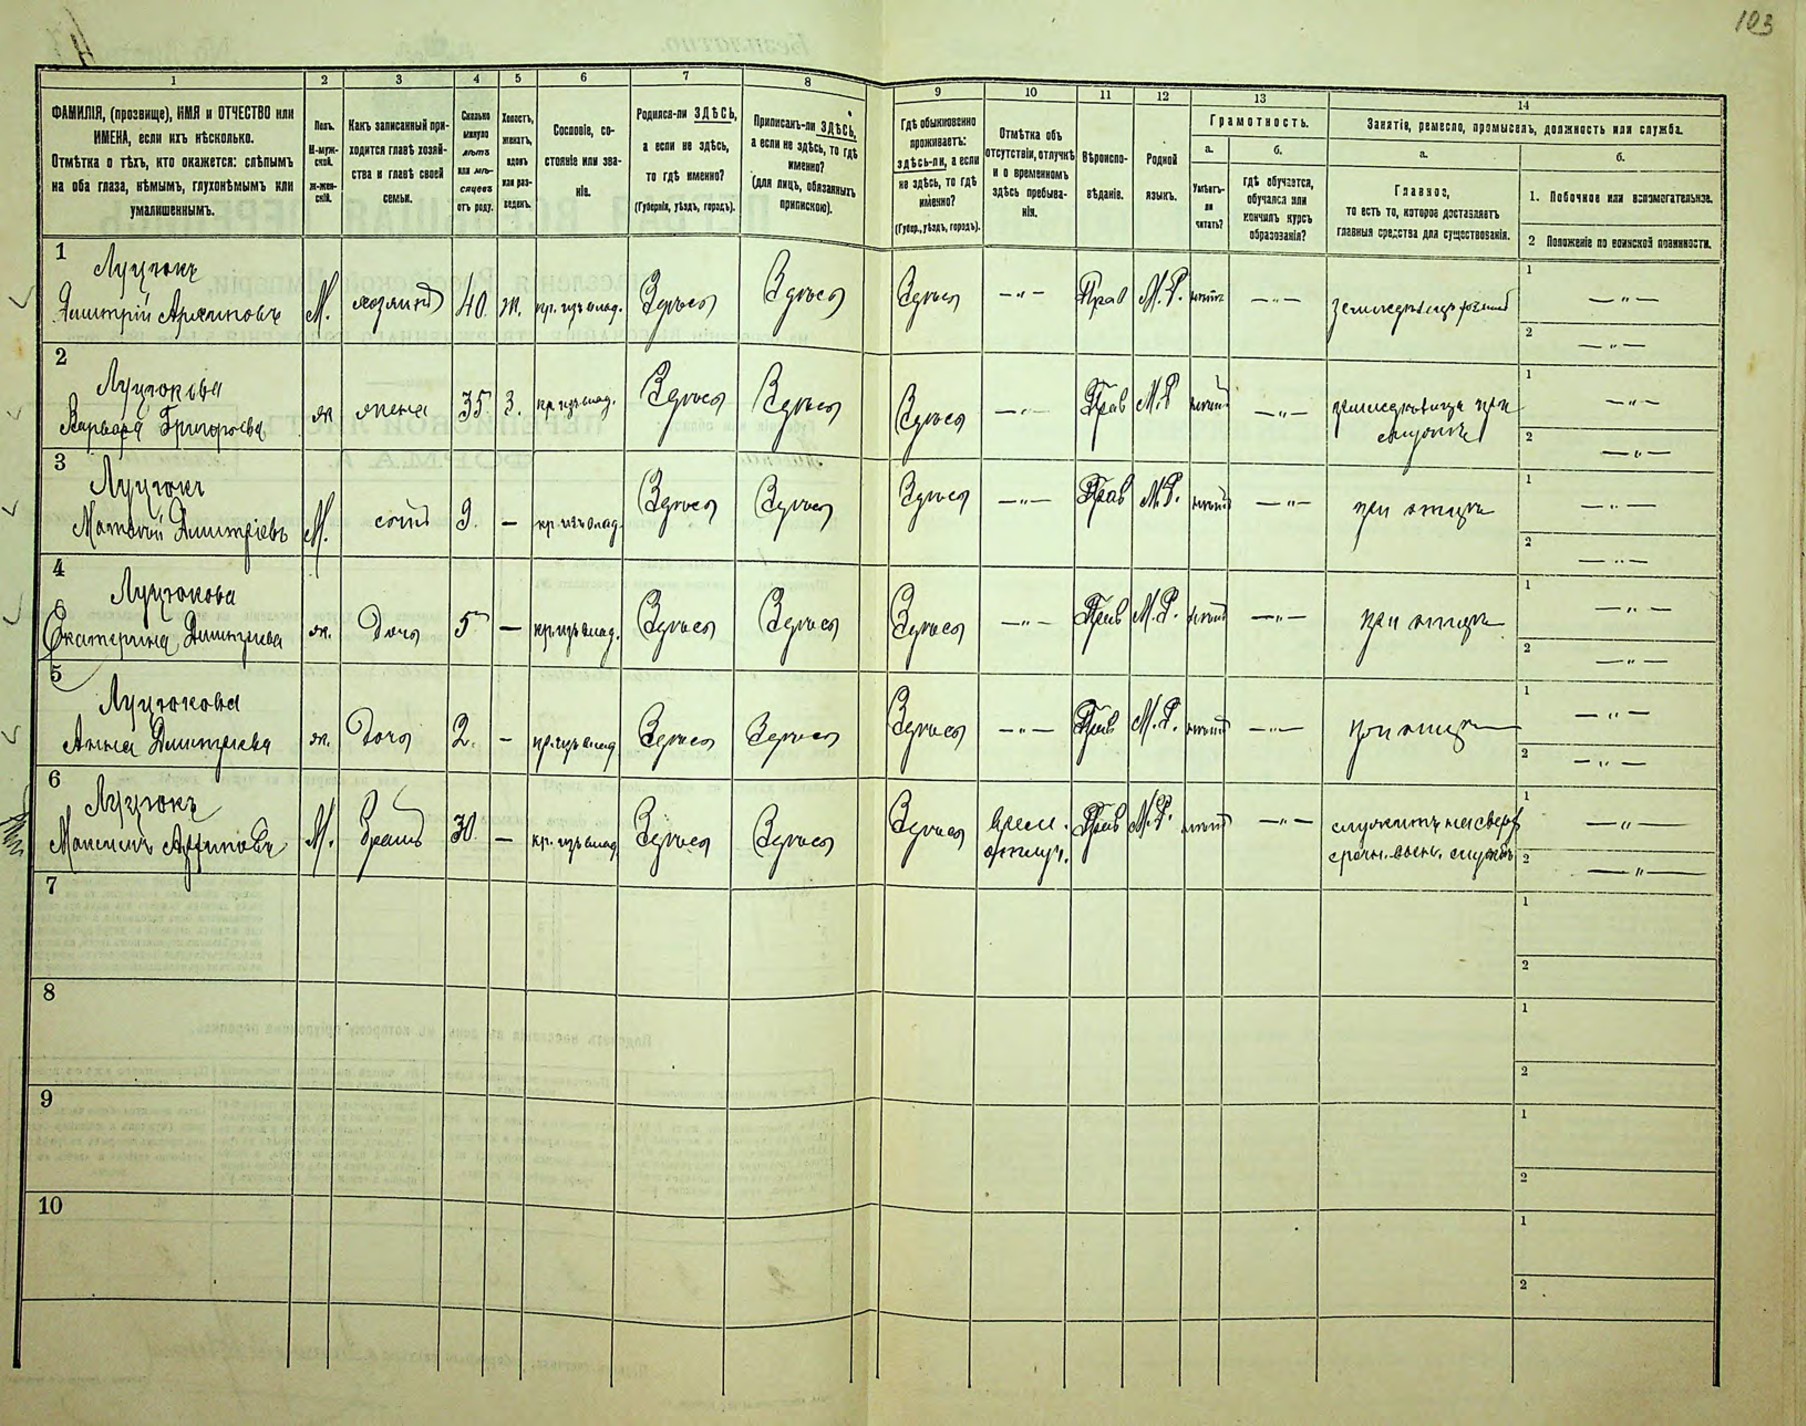 103
1 2 3 4 5 6 7 8 9 10 11 12 13 14
ФАМИЛІЯ, (прозвище), ИМЯ и ОТЧЕСТВО или
ИМЕНА, если ихъ нѣсколько.
Отмѣтка о тѣхъ, кто окажется: слѣпымъ
на оба глаза, нѣмымъ, глухонѣмымъ или
умалишеннымъ.
Полъ.
М-муж-
ской.
Ж-жен-
скій.
Какъ записанный при-
ходится главѣ хозяй-
ства и главѣ своей
семьи.
Сколько
минуло
лѣтъ
или мѣ-
сяцевъ
отъ роду.
Холостъ,
женатъ,
вдовъ
или раз-
веденъ.
Сословіе, со-
стояніе или зва-
ніе.
Родился-ли ЗДѢСЬ,
а если не здѣсь,
то гдѣ именно?
(Губернія, уѣздъ, городъ).
Приписанъ-ли ЗДѢСЬ,
а если не здѣсь, то гдѣ
именно?
(для лицъ, обязанныхъ
припискою).
Гдѣ обыкновенно
проживаетъ:
здѣсь-ли, а если
не здѣсь, то гдѣ
именно?
(Губер., уѣздъ, городъ).
Отмѣтка объ
отсутствіи, отлучкѣ
и о временномъ
здѣсь пребыва-
ніи.
Вѣроиспо-
вѣданіе.
Родной
языкъ.
Грамотность.
а.
Умѣетъ-
ли
читать?
б.
гдѣ обучается,
обучался или
кончилъ курсъ
образованія?
Занятіе, ремесло, промыселъ, должность или служба.
а.
Главное,
то есть то, которое доставляетъ
главныя средства для существованія.
б.
1. Побочное или вспомогательное.
2 Положеніе по воинской повинности.
1
Луцюкъ
Дмитрій Архиповъ М. хозяинъ 40. ж. кр. изъ влад. Здѣсь Здѣсь Здѣсь — " — Прав М. Р. — " —
1 — " —
2 — " —
2
Луцюкова
Варвара Григорьева ж жена 35 З. кр. изъ влад. Здѣсь Здѣсь Здѣсь — " — Прав М. Р — " — земледѣлица при
1 — " —
2 — " —
3
Луцюкъ
Матвѣй Дмитріевъ М. сынъ 9. — кр. изъ влад. Здѣсь Здѣсь Здѣсь — " — Прав М. Р. — " — при отцѣ
1 — " —
2 — " —
4
Луцюкова
Екатерина Дмитріева ж. Дочь 5 — кр. изъ влад. Здѣсь Здѣсь Здѣсь — " — Прав М. Р. — " — при отцѣ
1 — " —
2 — " —
5
Луцюкова
Анна Дмитріева ж. Дочь 2. — кр. изъ влад Здѣсь Здѣсь Здѣсь — " — Прав М. Р. — " — при отцѣ
1 — " —
2 — " —
6
Луцюкъ
Максимъ Архиповъ М. Братъ 30. — кр. изъ влад Здѣсь Здѣсь Здѣсь врем. Прав М. Р. — " — служитъ на сверх
отлуч. срочн. воен. службѣ
1 — " —
2 — " —
7
1
2
8
1
2
9
1
2
10
1
2